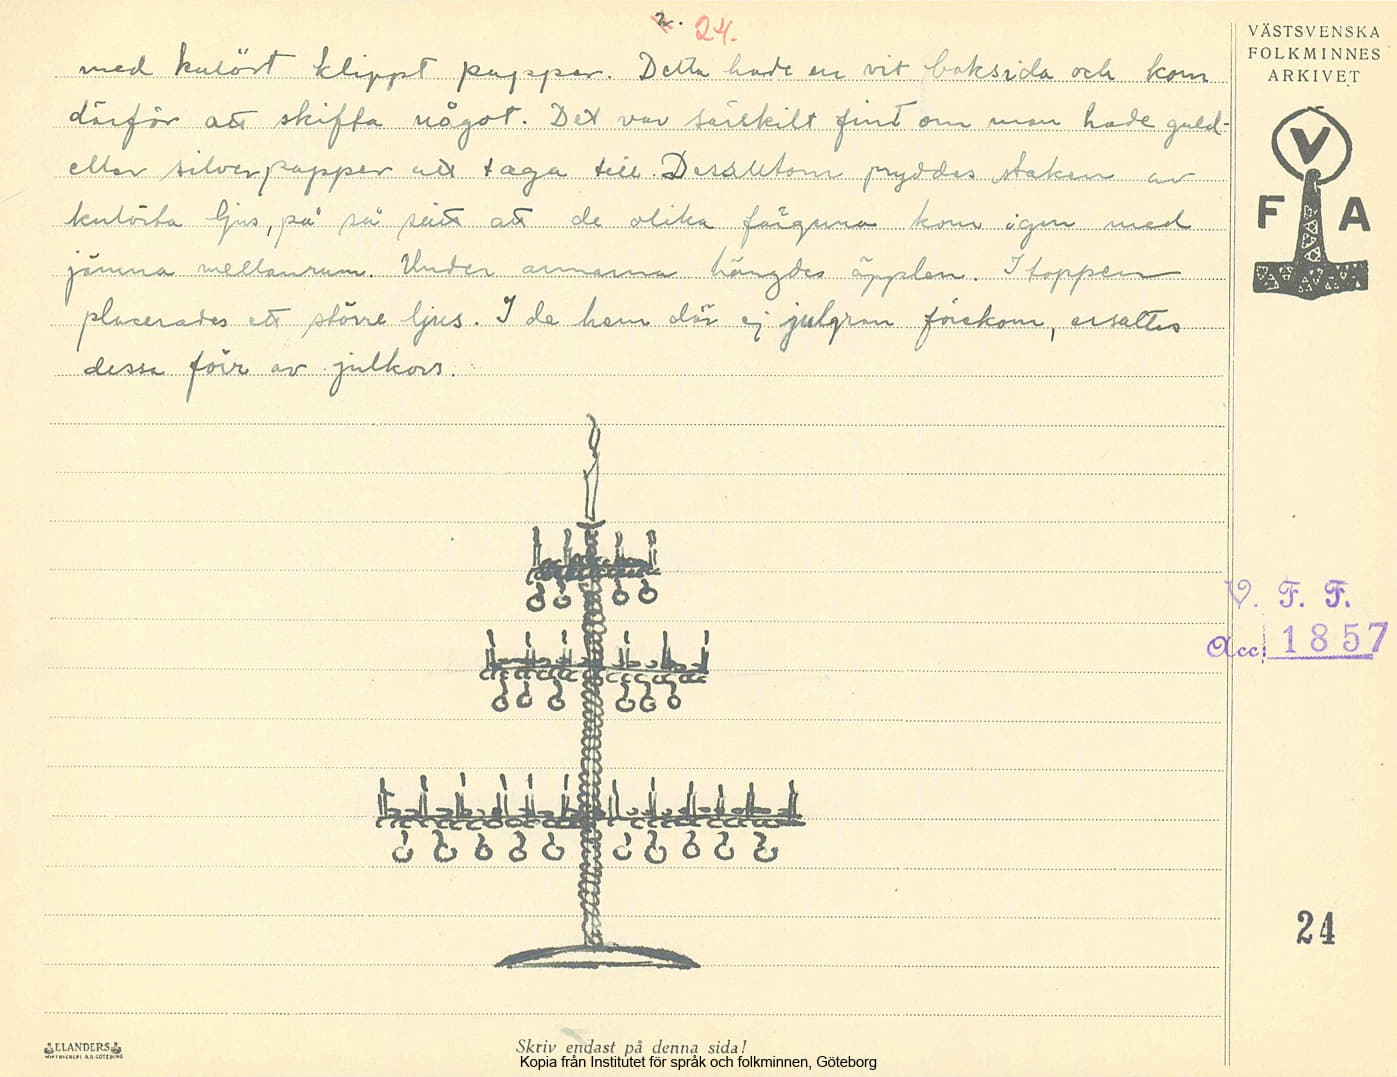 2. 24.
med kulört klippt papper. Detta hade en vit baksida och kom
därför att skifta något. Det var särskilt fint om man hade guld-
eller silverpapper att taga till. Dessutom pryddes staken av
kulörta ljus, på så sätt att de olika färgerna kom igen med
jämna mellanrum. Under armarna hängdes äpplen. I toppen
placerades ett större ljus. I de hem där ej julgran förekom, ersattes
dessa förr av julkors.
VÄSTSVENSKA
FOLKMINNES
ARKIVET
V
F A
V. F. F.
Acc. 1857
24
ELANDERS
BOKTRYCKERI A.B. GÖTEBORG
Skriv endast på denna sida!
Kopia från Institutet för språk och folkminnen, Göteborg